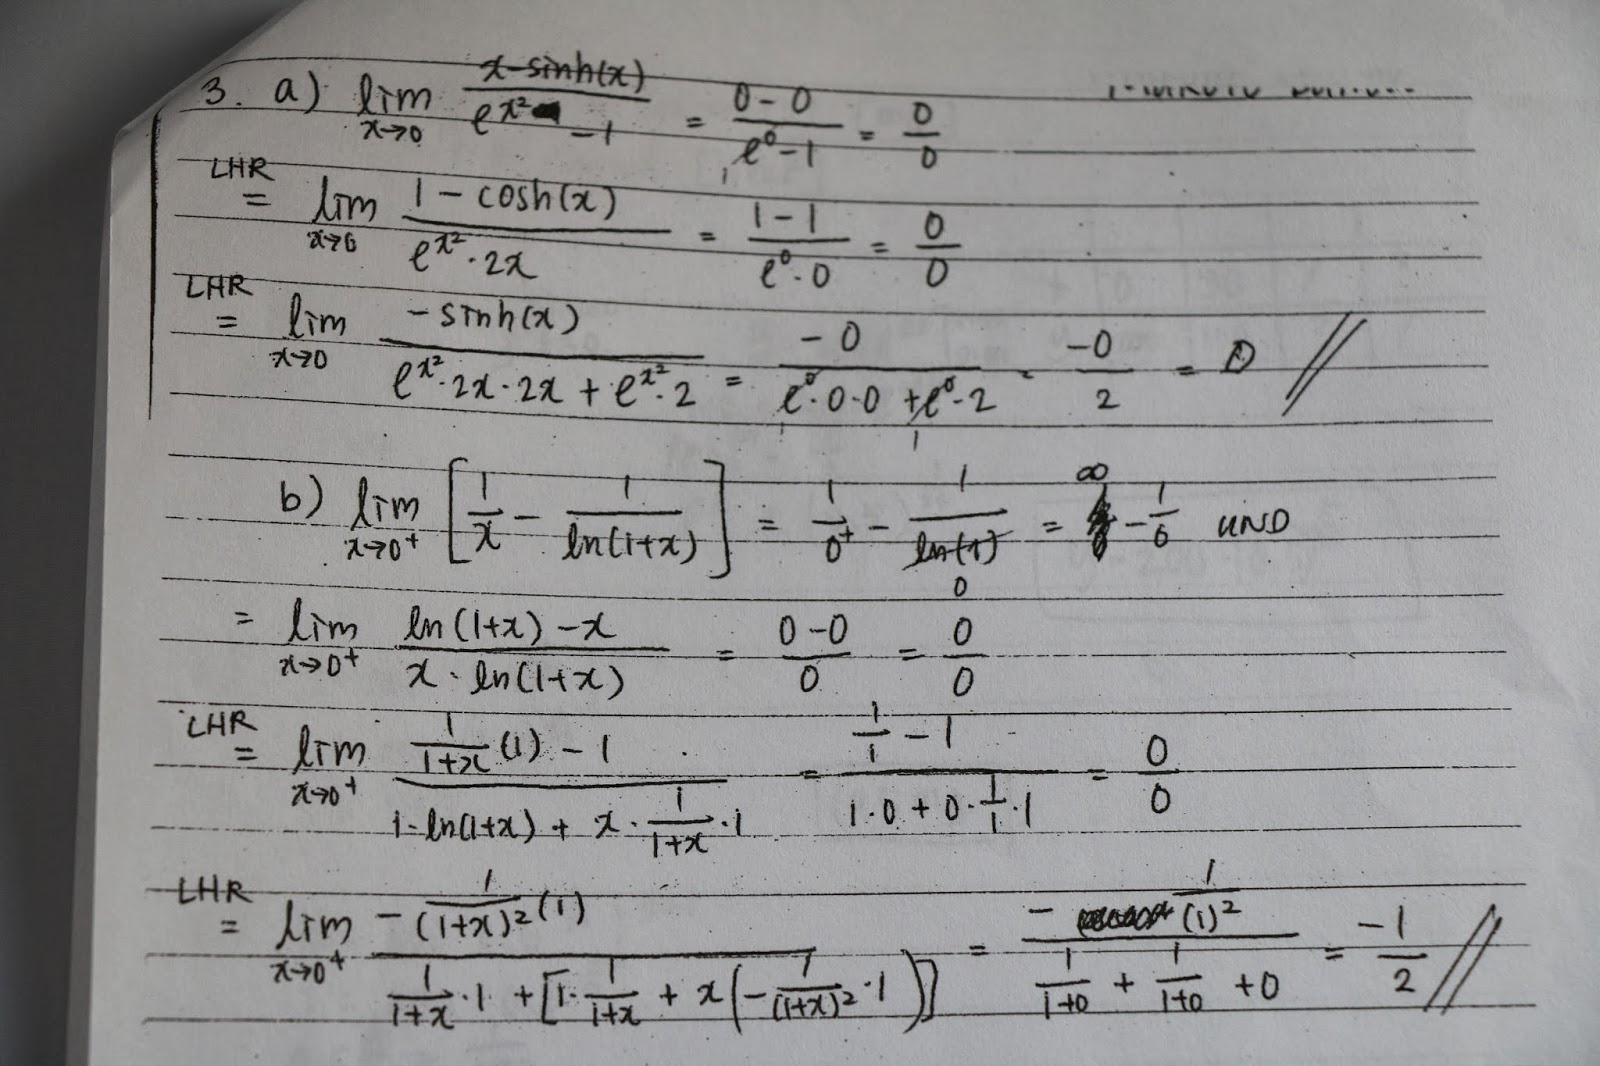 3. a) lim x→0 (x-sinh(x))/(e^x² -1) = (0-0)/(e^0-1) = 0/0
LHR = lim x→0 (1-cosh(x))/(e^x²·2x) = (1-1)/(e^0·0) = 0/0
LHR = lim x→0 (-sinh(x))/(e^x²·2x·2x + e^x²·2) = (-0)/(e^0·0·0 + e^0·2) = -0/2 = 0 //
b) lim x→0+ [1/x - 1/ln(1+x)] = 1/0+ - 1/ln(1) = ∞ - 1/0 UND
= lim x→0+ (ln(1+x)-x)/(x·ln(1+x)) = (0-0)/0 = 0/0
LHR = lim x→0+ (1/(1+x) (1) - 1)/(1·ln(1+x) + x·1/(1+x)·1) = (1/1 - 1)/(1·0+0·1/1·1) = 0/0
LHR = lim x→0+ (-1/(1+x)² (1))/(1/(1+x)·1 + [1·1/(1+x) + x(-1/(1+x)²·1)]) = (-1/(1)²)/(1/(1+0) + 1/(1+0) + 0) = -1/2 //